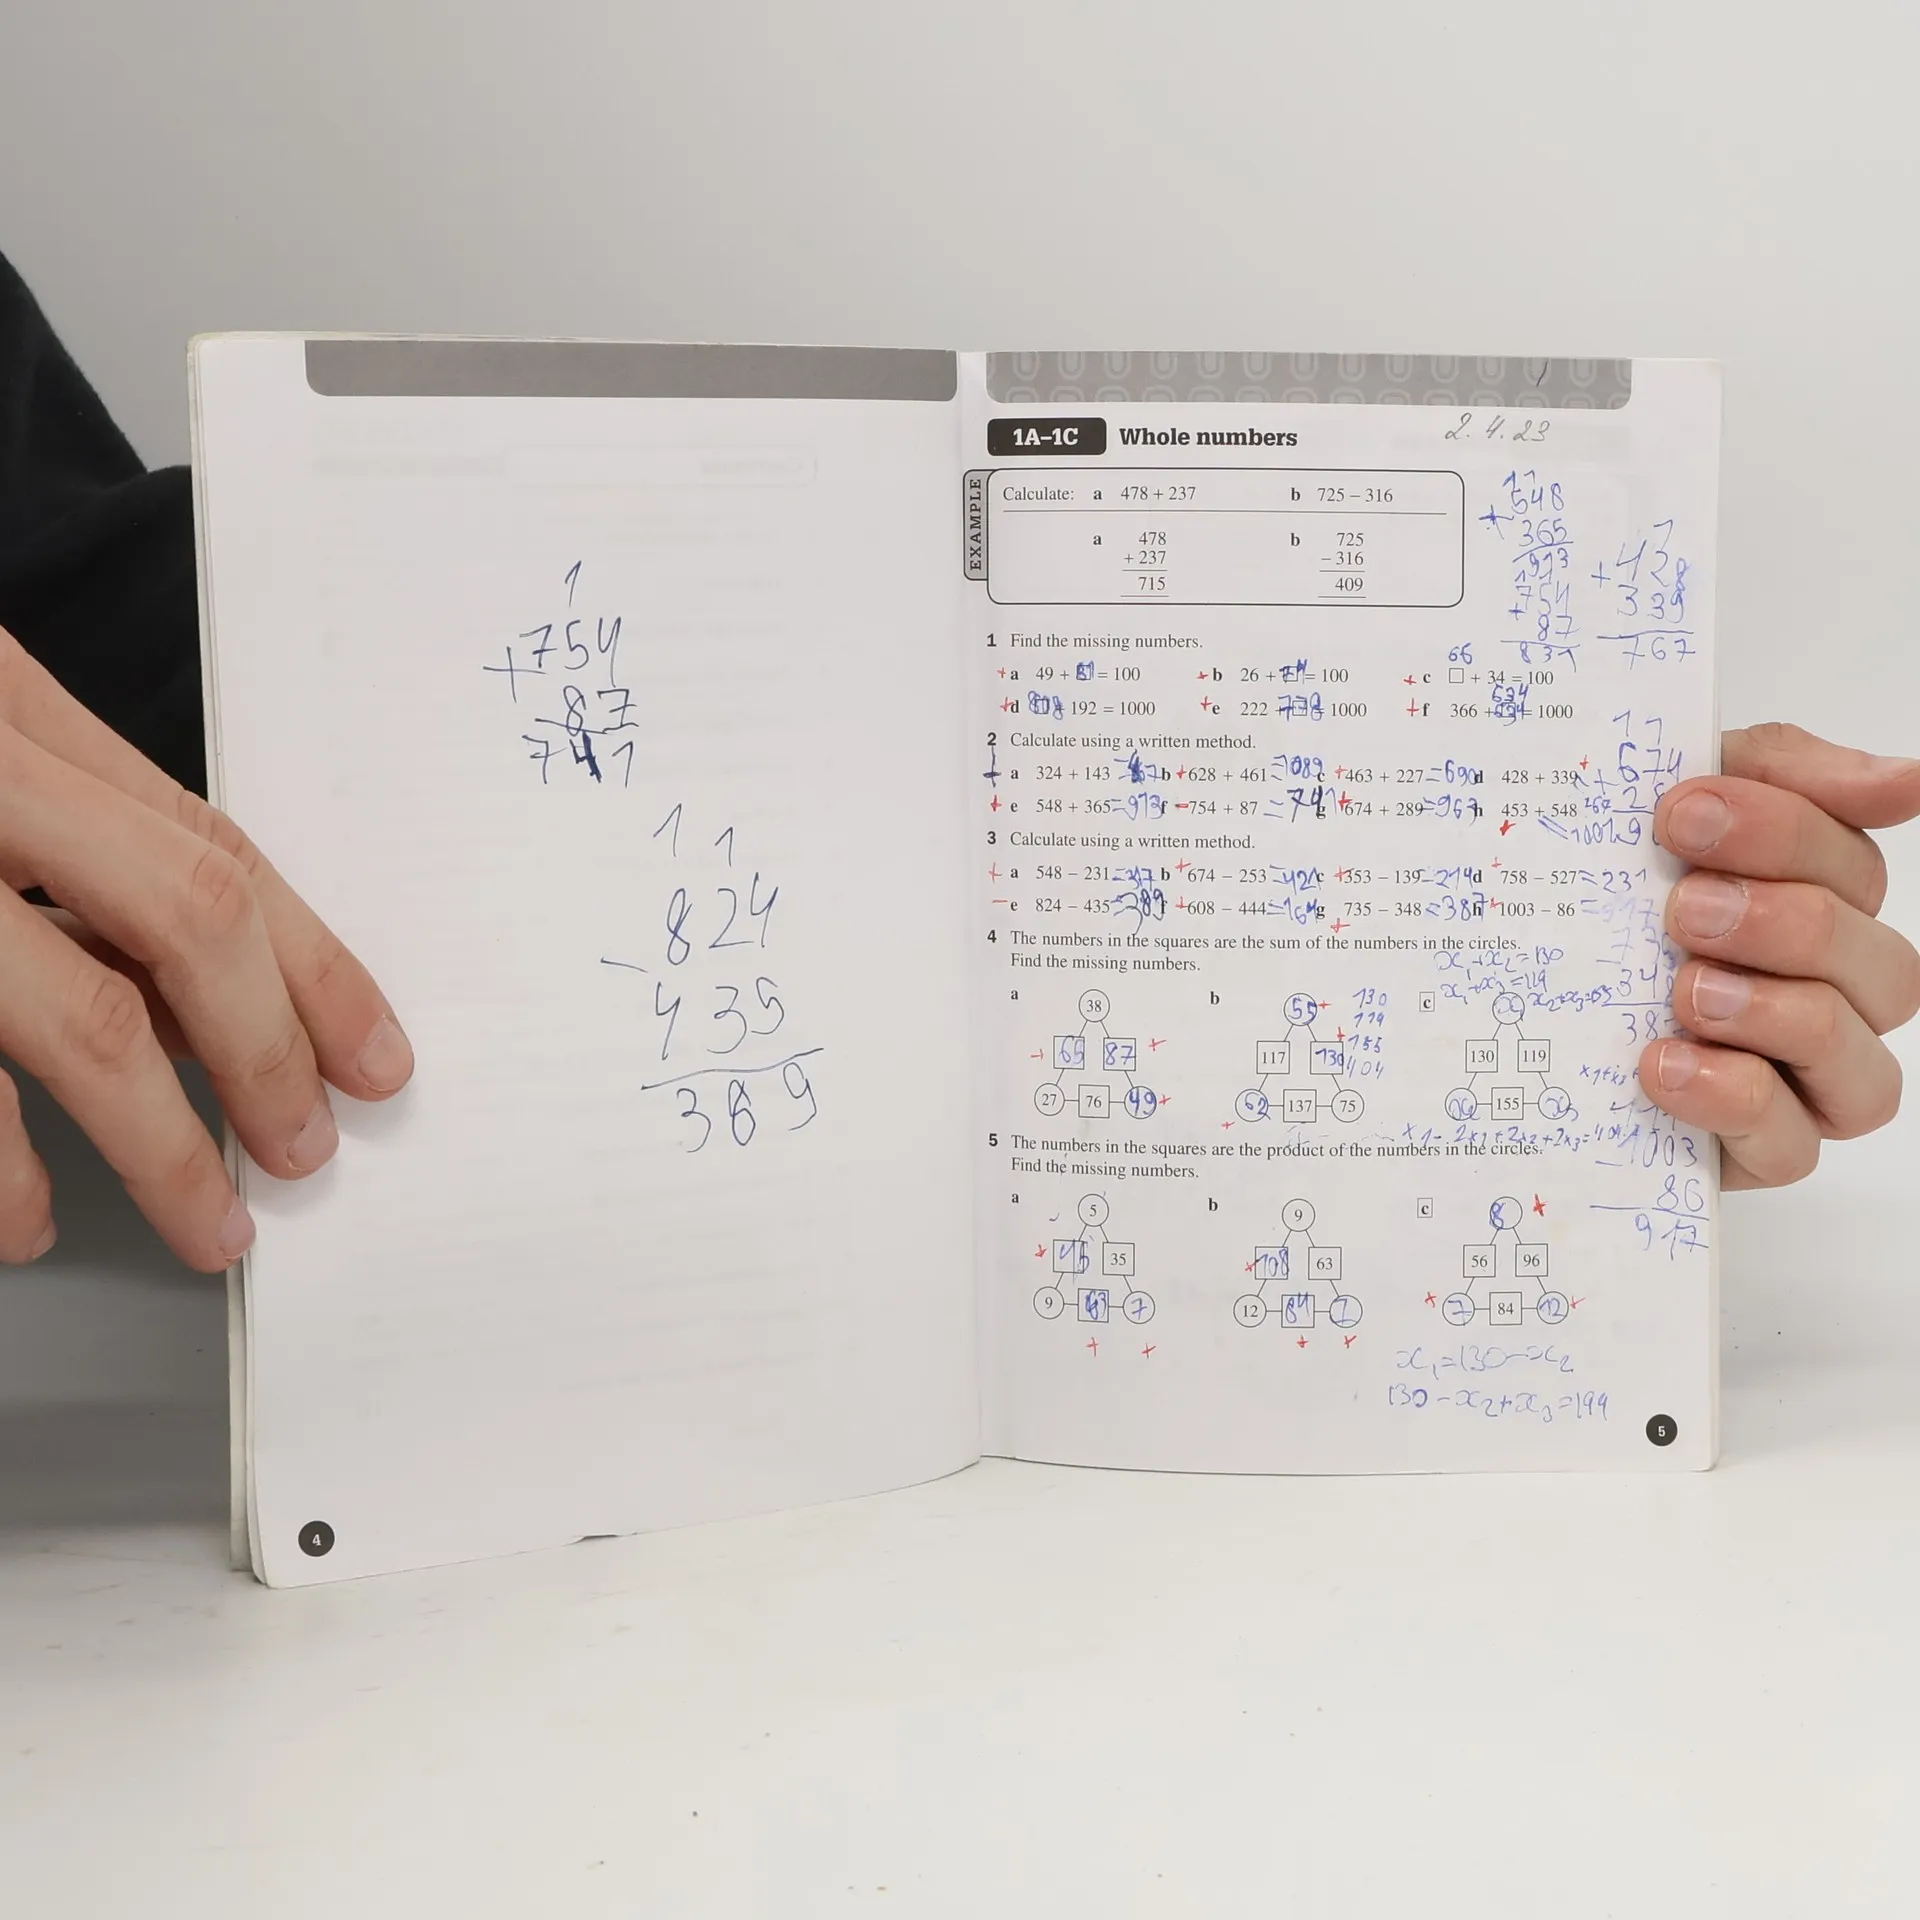 1
+754
87
741
1 1
824
-
435
389
4
1A–1C Whole numbers 2.4.23
EXAMPLE
Calculate: a 478 + 237 b 725 – 316
a 478 b 725
+ 237 – 316
715 409
11
548
+ 365
913
754
+ 87
831
1
+ 428
339
767
1 Find the missing numbers.
+ a 49 + 51 = 100 + b 26 + 74 = 100 + c 66 □ + 34 = 100
+ d 808 + 192 = 1000 + e 222 + 778 = 1000 + f 366 + 634 = 1000
634
2 Calculate using a written method.
+ a 324 + 143 = 467 b + 628 + 461 = 1089 c + 463 + 227 = 690 d 428 + 339 +
+ e 548 + 365 = 913 f – 754 + 87 = 741 g + 674 + 289 = 963 h 453 + 548 = 1001
1 1
+ 674
3 Calculate using a written method.
+ a 548 – 231 = 317 b + 674 – 253 = 421 c + 353 – 139 = 214 d + 758 – 527 = 231
– e 824 – 435 = 389 f + 608 – 444 = 164 g 735 – 348 = 387 h + 1003 – 86 = 917
4 The numbers in the squares are the sum of the numbers in the circles.
Find the missing numbers.
x₁+x₂=130
x₁+x₃=119
a b c
38 55 + x₁
130
119
155
404
65 87 + 117 130 130 119
27 76 49 + 62 137 75 x₂ 155 x₃
2x₁+2x₂+2x₃=404
5 The numbers in the squares are the product of the numbers in the circles.
Find the missing numbers.
1003
– 86
917
a b c
5 9 8 +
+ 45 35 + 108 63 56 96
9 63 7 12 84 7 + 7 84 12 +
+ + + +
x₁=130–x₂
130–x₂+x₃=119
5